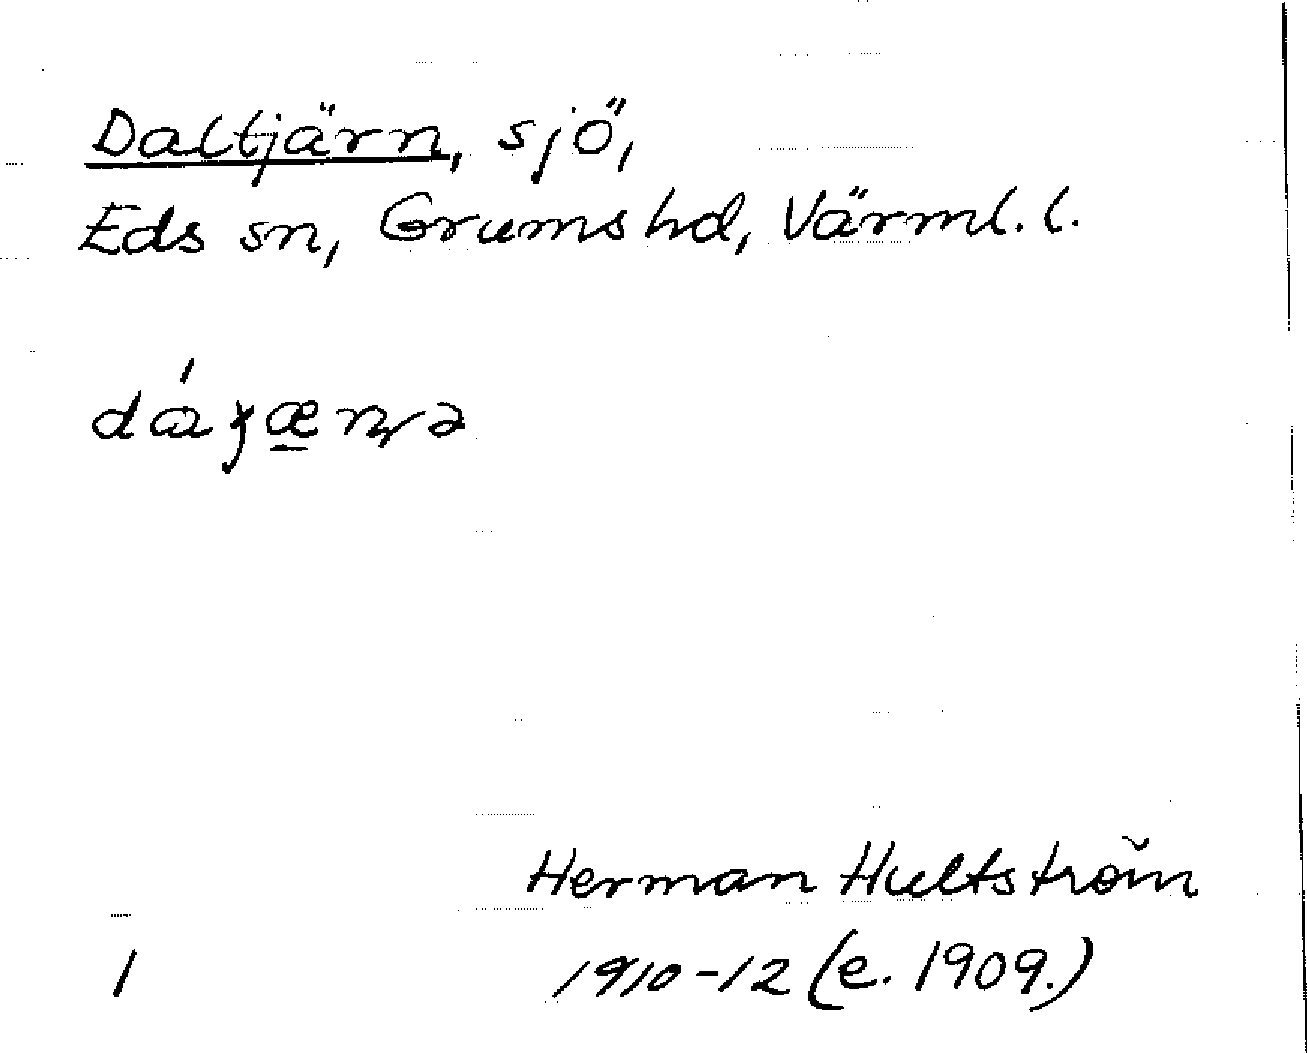 Daltjärn, sjö,
Eds sn, Grums hd, Värml. l.
Herman Hultström
1 1910-12 (e. 1909.)